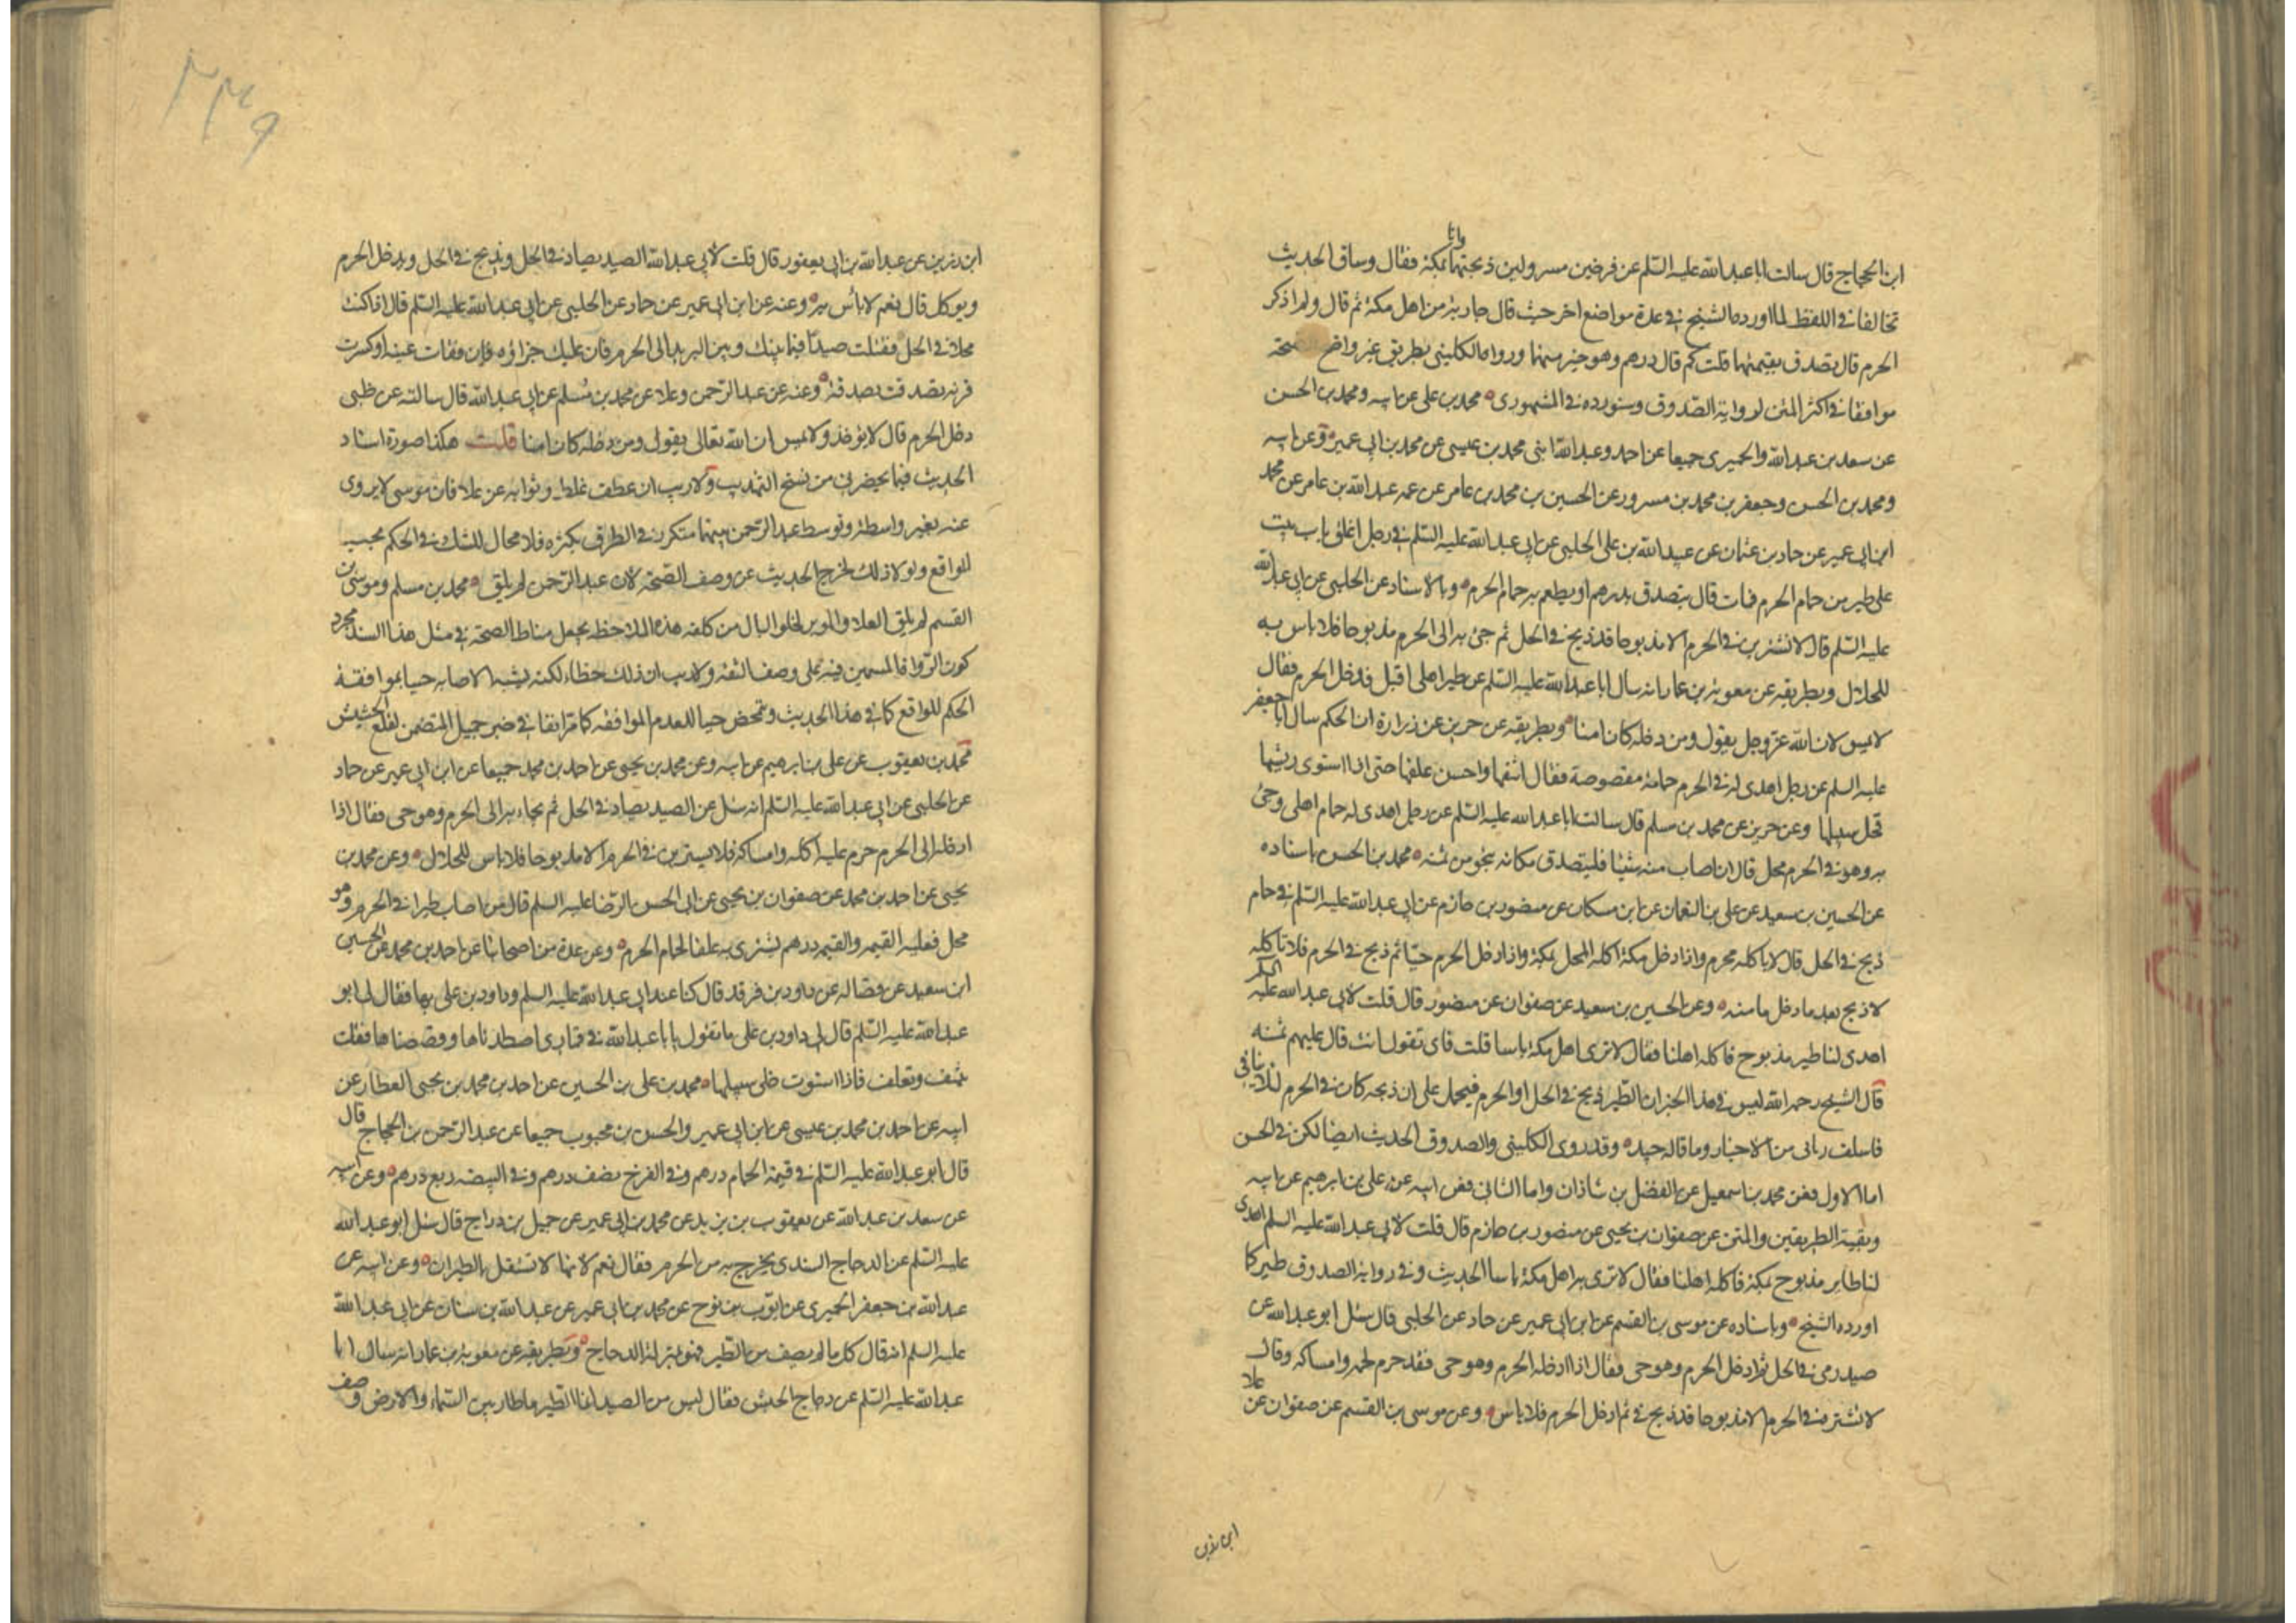 ابن الحجاج قال سالت ابا عبد الله عليه السلم عن فرخين مسرولين ذبحتهما وانا بمكة فقال وساق الحديث
تخالفا في اللفظ لما اورده الشيخ في عدة مواضع اخر حيث قال جارية من اهل مكة ثم قال ولم اذكر
الحرم قال تصدق بقيمتهما قلت كم قال درهم وهو خير منهما ورواه الكليني بطريق غير واضح الصحة
موافقا في اكثر المتن لرواية الصدوق وسنورده في المشهوري محمد بن علي عن ابيه ومحمد بن الحسن
عن سعد بن عبد الله والحميري جميعا عن احمد وعبد الله ابنى محمد بن عيسى عن محمد بن ابي عمير وعن ابيه
ومحمد بن الحسن وجعفر بن محمد بن مسرور عن الحسين بن محمد بن عامر عن عمه عبد الله بن عامر عن محمد
ابن ابي عمير عن حماد بن عثمان عن عبيد الله بن علي الحلبي عن ابي عبد الله عليه السلم في رجل اغلق باب بيت
على طير من حمام الحرم فمات قال يتصدق بدرهم او يطعم به حمام الحرم وبالاسناد عن الحلبي عن ابي عبد الله
عليه السلم قال لا تشترين في الحرم الا مذبوحا قد ذبح في الحل ثم جئ به الى الحرم مذبوحا فلا باس به
للحلال وبطريقه عن معوية بن عمار انه سال ابا عبد الله عليه السلم عن طير اهلى اقبل فدخل الحرم فقال
لا يمس لان الله عز وجل يقول ومن دخله كان امنا وبطريقه عن حريز عن زرارة ان الحكم سال ابا جعفر
عليه السلم عن رجل اهدى له في الحرم حمامة مقصوصة فقال انتفها واحسن علفها حتى اذا استوى ريشها
فخل سبيلها وعن حريز عن محمد بن مسلم قال سالت ابا عبد الله عليه السلم عن رجل اهدى له حمام اهلى وجئ
به وهو في الحرم محل قال ان اصاب منه شيئا فليتصدق مكانه بنحو من ثمنه محمد بن الحسن باسناده
عن الحسين بن سعيد عن علي بن النعمان عن ابن مسكان عن منصور بن حازم عن ابي عبد الله عليه السلم في حمام
ذبح في الحل قال لا ياكله محرم واذا دخل مكة اكله المحل بمكة واذا دخل الحرم حيا ثم ذبح في الحرم فلا تاكله
لا ذبح بعد ما دخل مامنه وعن الحسين بن سعيد عن صفوان عن منصور قال قلت لابي عبد الله عليه السلم
اهدى لنا طير مذبوح فاكله اهلنا فقال لا ترى اهل مكة باسا قلت فاى تقول انت قال عليهم ثمنه
قال الشيخ رحمه الله ليس في هذا الخبر ان الطير ذبح في الحل او الحرم فيحمل على ان ذبحه كان في الحرم لئلا ينافى
فاسلف ر‍باتى من الاخبار وما قاله جيد وقد روى الكليني والصدوق الحديث ايضا لكن في الحسن
اما الاول فعن محمد بن اسمعيل عن الفضل بن شاذان واما الثانى فعن ابيه عن على بن ابرهيم عن ابيه
وبقية الطريقين والمتن عن صفوان بن يحيى عن منصور بن حازم قال قلت لابي عبد الله عليه السلم اهدى
لنا طاير مذبوح بمكة فاكله اهلنا فقال لا ترى به اهل مكة باسا الحديث وفي رواية الصدوق طير كما
اورده الشيخ وباسناده عن موسى بن القسم عن ابن ابي عمير عن حماد عن الحلبي قال سئل ابو عبد الله عن
صيد رمى في الحل ثم ادخل الحرم وهو حى فقال اذا ادخله الحرم وهو حى فقد حرم لحمه وامساكه وقال
لا تشتره في الحرم الا مذبوحا قد ذبح في ثم ادخل الحرم فلا باس وعن موسى بن القسم عن صفوان عن علا
ابن رزين
٢٣٩
ابن رزين عن عبد الله بن ابي يعفور قال قلت لابي عبد الله الصيد يصاد في الحل ويذبح في الحل ويدخل الحرم
ويوكل قال نعم لا بأس به وعنه عن ابن ابي عمير عن حماد عن الحلبي عن ابي عبد الله عليه السلم قال اذا كنت
محلا في الحل فقتلت صيدا فيما بينك وبين البريد الى الحرم فان عليك جزاؤه فإن فقات عينه او كسرت
قرنه تصدقت بصدقة وعنه عن عبد الرحمن وعلا عن محمد بن مسلم عن ابي عبد الله قال سالته عن ظبى
دخل الحرم قال لا يوخذ ولا يمس ان الله تعالى يقول ومن دخله كان امنا قلت هكذا صورة اسناد
الحديث فيما يحضرنى من نسخ التهذيب ولا ريب ان عطف غلط وثوابه عن علا فان موسى لا يروى
عنه بغير واسطة وتوسط عبد الرحمن بينهما متكرر في الطرق بكثرة فلا مجال للشك في الحكم بحسب
الواقع ولولا ذلك لخرج الحديث عن وصف الصحة لان عبد الرحمن لم يلق محمد بن مسلم وموسى بن
القسم لم يلق العلا والموير لخلو البال من كلفة هذه الملاحظة يجعل مناط الصحة في مثل هذا السند مجرد
كون الرواة المسمين فيه على وصف الثقة ولا ريب ان ذلك خطاء لكنه يشبه الاصابة حيا بموافقة
الحكم للواقع كما في هذا الحديث ويتمحض حيا للعدم الموافقه كما مر انفا في خبر جميل المتضمن لقلع الحشيش
محمد بن يعقوب عن على بن ابرهيم عن ابيه وعن محمد بن يحيى عن احمد بن محمد جميعا عن ابن ابي عمير عن حماد
عن الحلبي عن ابي عبد الله عليه السلم انه سئل عن الصيد يصاد في الحل ثم يجاء به الى الحرم وهو حى فقال اذا
ادخله الى الحرم حرم عليه اكله وامساكه فلا تشترين في الحرم الا مذبوحا فلا باس للحلال وعن محمد بن
يحيى عن احمد بن محمد عن صفوان بن يحيى عن ابى الحسن الرضا عليه السلم قال من اصاب طيرا في الحرم وهو
محل فعليه القيمه والقيمه درهم تشترى به علفا لحمام الحرم وعن عدة من اصحابنا عن احمد بن محمد عن الحسين
ابن سعيد عن فضاله عن داود بن فرقد قال كنا عند ابي عبد الله عليه السلم وداود بن على بها فقال لى ابو
عبد الله عليه السلم قال لى داود بن على ما تقول يابا عبد الله في قمارى اصطدناها وقصصناها فقلت
تنتف وتعلف فاذا استوت خلى سبيلها محمد بن على بن الحسين عن احمد بن محمد بن يحيى العطار عن
ابيه عن احمد بن محمد بن عيسى عن ابن ابي عمير والحسن بن محبوب جميعا عن عبد الرحمن بن الحجاج قال
قال ابو عبد الله عليه السلم في قيمة الحمام درهم وفي الفرخ نصف درهم وفي البيضه ربع درهم وعن ابيه
عن سعد بن عبد الله عن يعقوب بن يزيد عن محمد بن ابي عمير عن جميل بن دراج قال سئل ابو عبد الله
عليه السلم عن الدجاج السندى يخرج به من الحرم فقال نعم لانها لا تستقل بالطيران وعن ابيه عن
عبد الله بن جعفر الحميرى عن ايوب بن نوح عن محمد بن ابي عمير عن عبد الله بن سنان عن ابي عبد الله
عليه السلم انه قال كل ما لم يصف من الطير فهو بمنزلة الدجاج وبطريقه عن معوية بن عمار انه سال ابا
عبد الله عليه السلم عن دجاج الحبش فقال ليس من الصيد انما الطير ما طار بين السماء والارض وصف